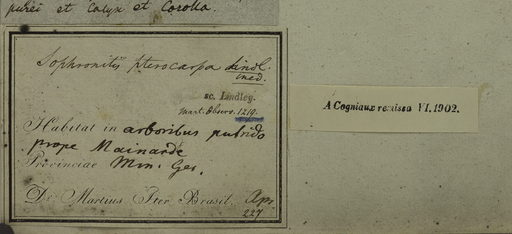 purei et Calyx et Corolla.
Sophronitis pterocarpa Lindl.
ined.
sc. Lindley.
Mart. Observ. 1219.
Habitat in arboribus putrido
prope Mainarde
Provinciae Min. Ger.
Dr. Martius Iter Brasil. Apr
227
A Cogniaux remissa VI. 1902.